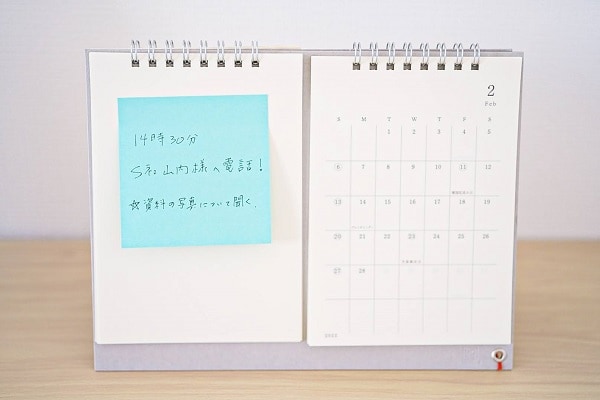 14時30分
S社 山内様へ電話!
☆資料の写真について聞く.
2
Feb
S M T W T F S
1 2 3 4 5
6 7 8 9 10 11 12
13 14 15 16 17 18 19
20 21 22 23 24 25 26
27 28
2022